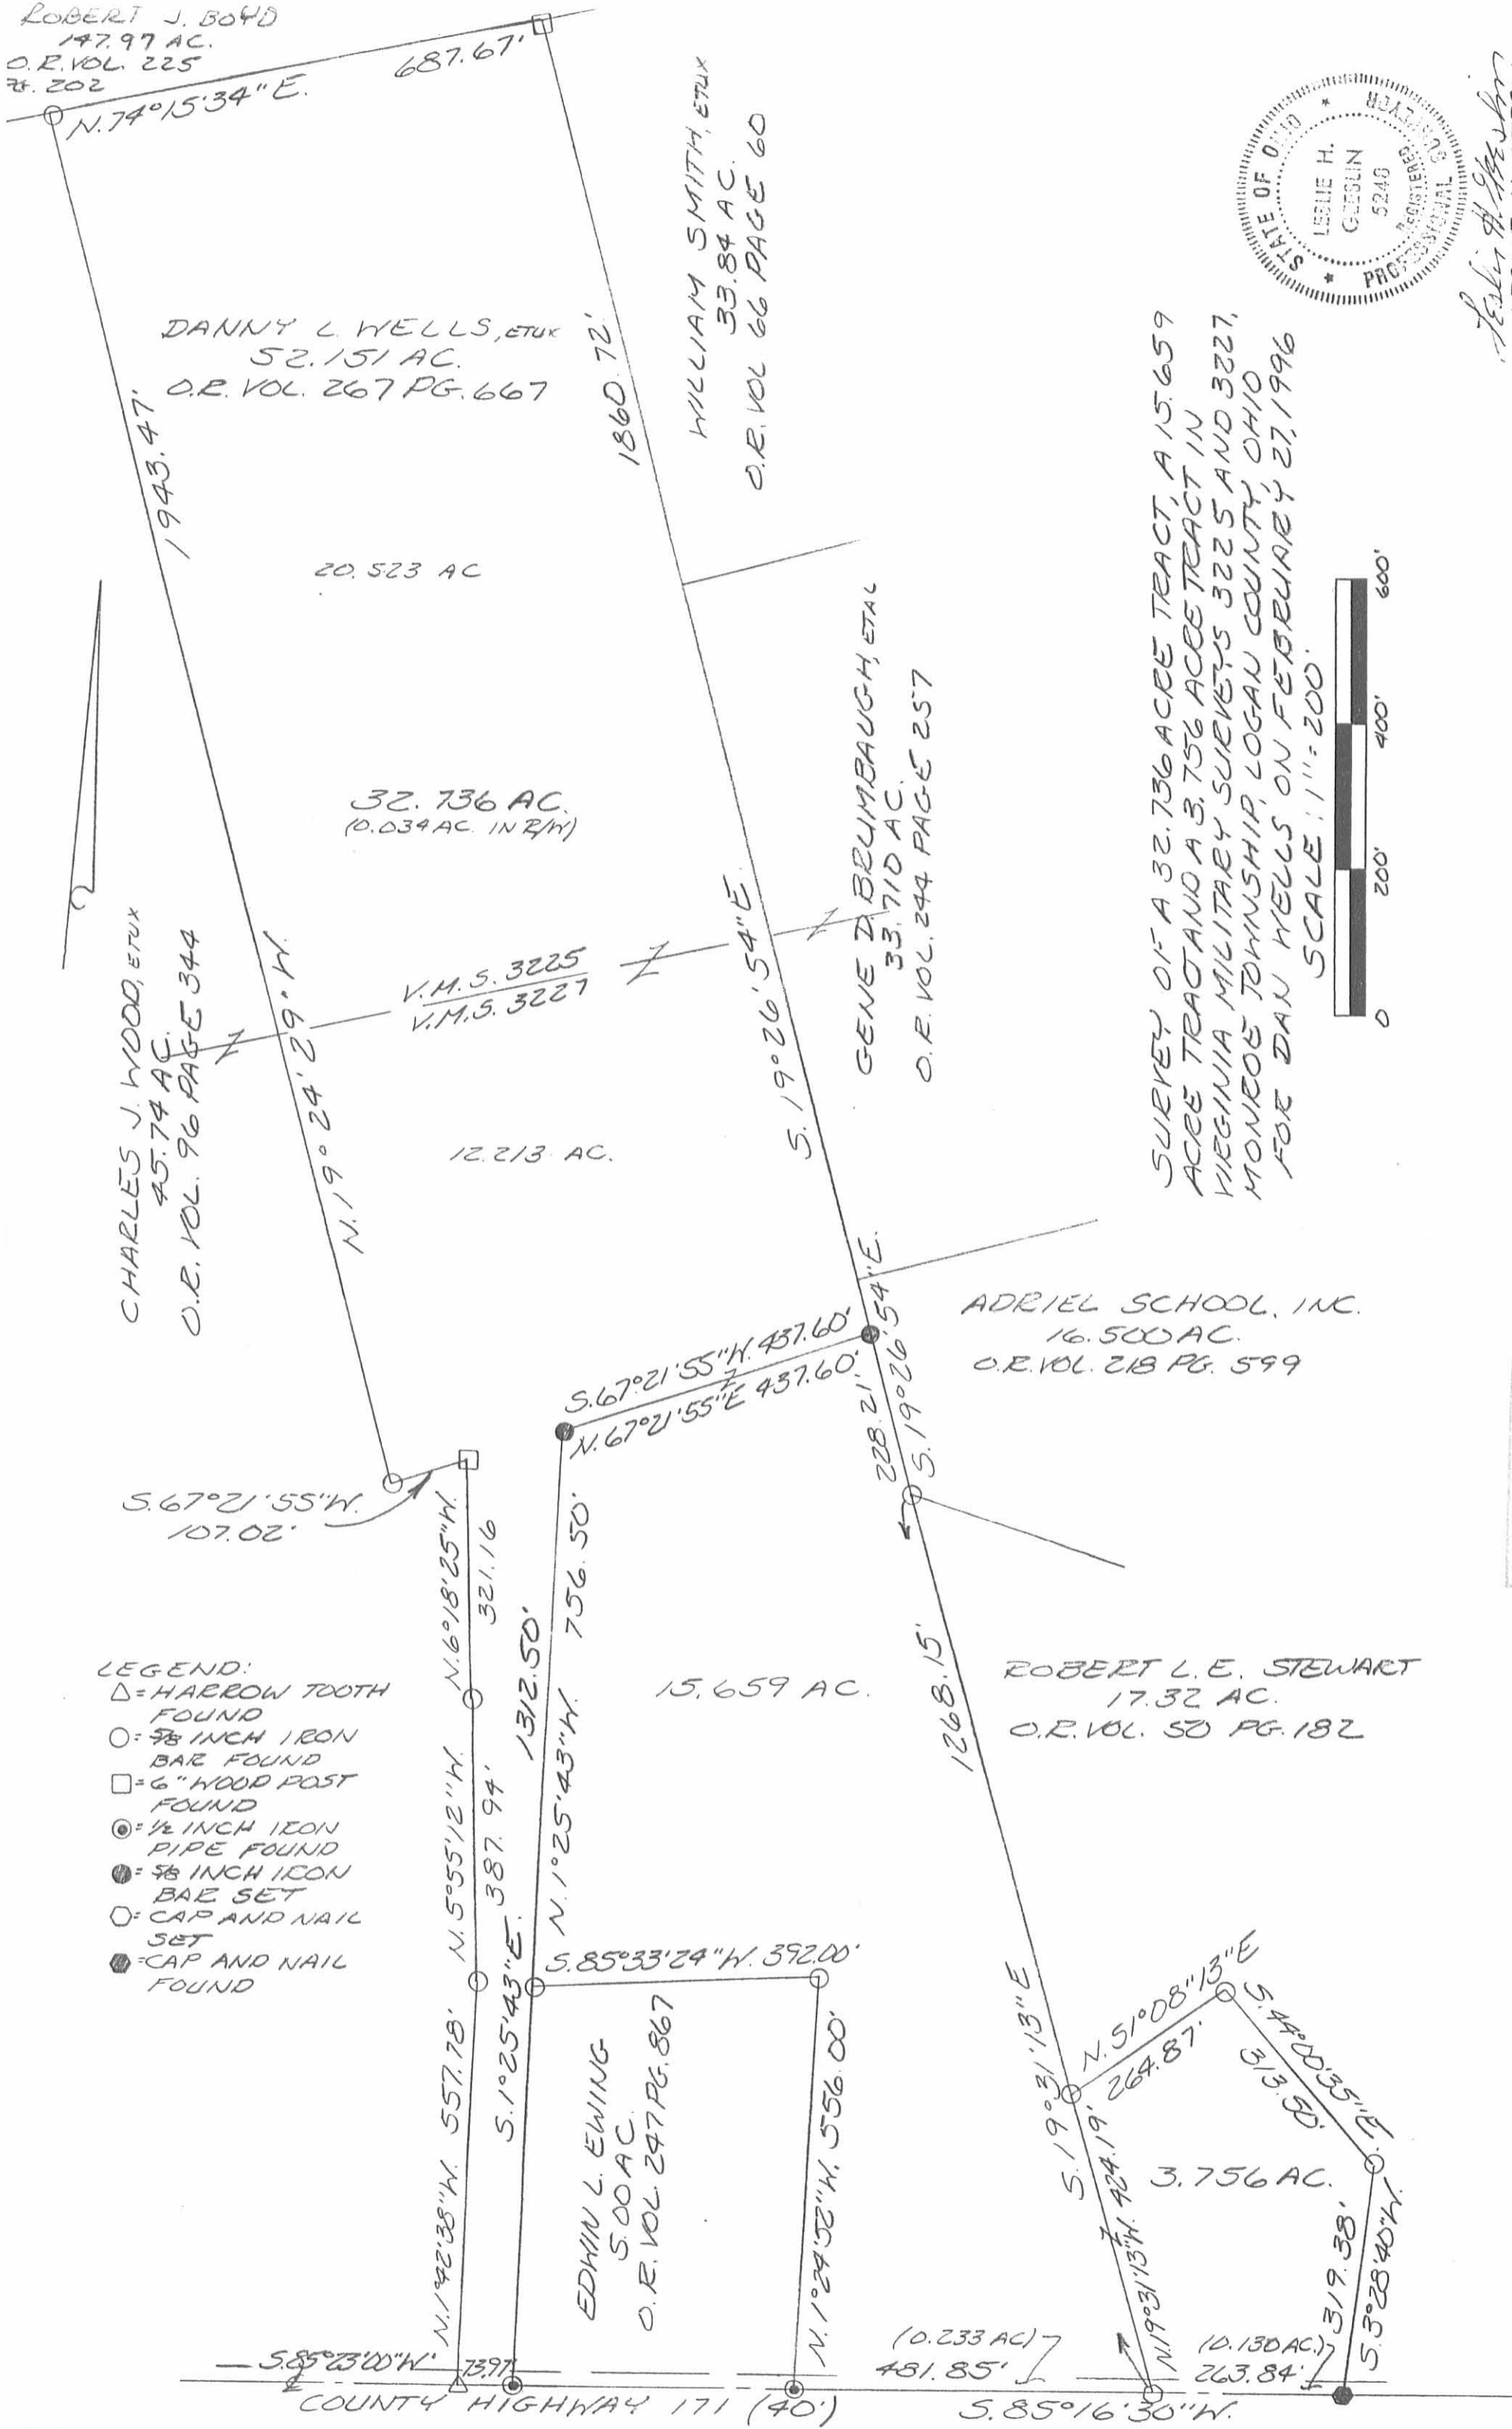 ROBERT J. BOYD
147.97 AC.
O.R. VOL. 225
PG. 202
N.74°15'34"E.
687.67'
WILLIAM SMITH, ETUX
33.84 AC.
O.R. VOL 66 PAGE 60
STATE OF OHIO
LESLIE H.
GEESLIN
5248
REGISTERED
PROFESSIONAL SURVEYOR
DANNY L. WELLS, ETUX
52.151 AC.
O.R. VOL. 267 PG. 667
1943.47'
1860.72'
20.523 AC
32.736 AC.
(0.034 AC. IN R/W)
CHARLES J. WOOD, ETUX
45.74 AC.
O.R. VOL. 96 PAGE 344
N.19°24'29"W.
V.M.S. 3225
V.M.S. 3227
S.19°26'54"E.
GENE D. BRUMBAUGH, ETAL
33.710 AC.
O.R. VOL. 244 PAGE 257
12.213 AC.
SURVEY OF A 32.736 ACRE TRACT, A 15.659
ACRE TRACT AND A 3.756 ACRE TRACT IN
VIRGINIA MILITARY SURVEYS 3225 AND 3227,
MONROE TOWNSHIP, LOGAN COUNTY, OHIO
FOR DAN WELLS ON FEBRUARY 27, 1996
SCALE: 1"=200'
0 200' 400' 600'
S.67°21'55"W. 437.60'
N.67°21'55"E 437.60'
228.21'
S.19°26'54"E.
ADRIEL SCHOOL, INC.
16.500 AC.
O.R. VOL. 218 PG. 599
S.67°21'55"W.
107.02'
N.6°18'25"W.
321.16
1312.50'
756.50'
15.659 AC.
1268.15'
ROBERT L.E. STEWART
17.32 AC.
O.R. VOL. 50 PG. 182
LEGEND:
△=HARROW TOOTH
FOUND
○=5/8 INCH IRON
BAR FOUND
□=6" WOOD POST
FOUND
◉=1/2 INCH IRON
PIPE FOUND
●=5/8 INCH IRON
BAR SET
⬡=CAP AND NAIL
SET
⬢=CAP AND NAIL
FOUND
N.5°55'12"W.
387.94'
S.1°25'43"E.
N.1°25'43"W.
S.85°33'24"W. 392.00'
EDWIN L. EWING
5.00 AC.
O.R. VOL. 247 PG. 867
N.1°42'38"W. 557.78'
N.1°24'52"W. 556.00'
S.19°31'13"E
N.51°08'13"E
264.87'
S.44°00'35"E.
313.50'
3.756 AC.
N19°31'13"W. 424.19'
319.38'
S.3°28'40"W.
S.85°23'00"W.
73.97'
(0.233 AC)
481.85'
(0.130 AC.)
263.84'
COUNTY HIGHWAY 171 (40')
S.85°16'30"W.